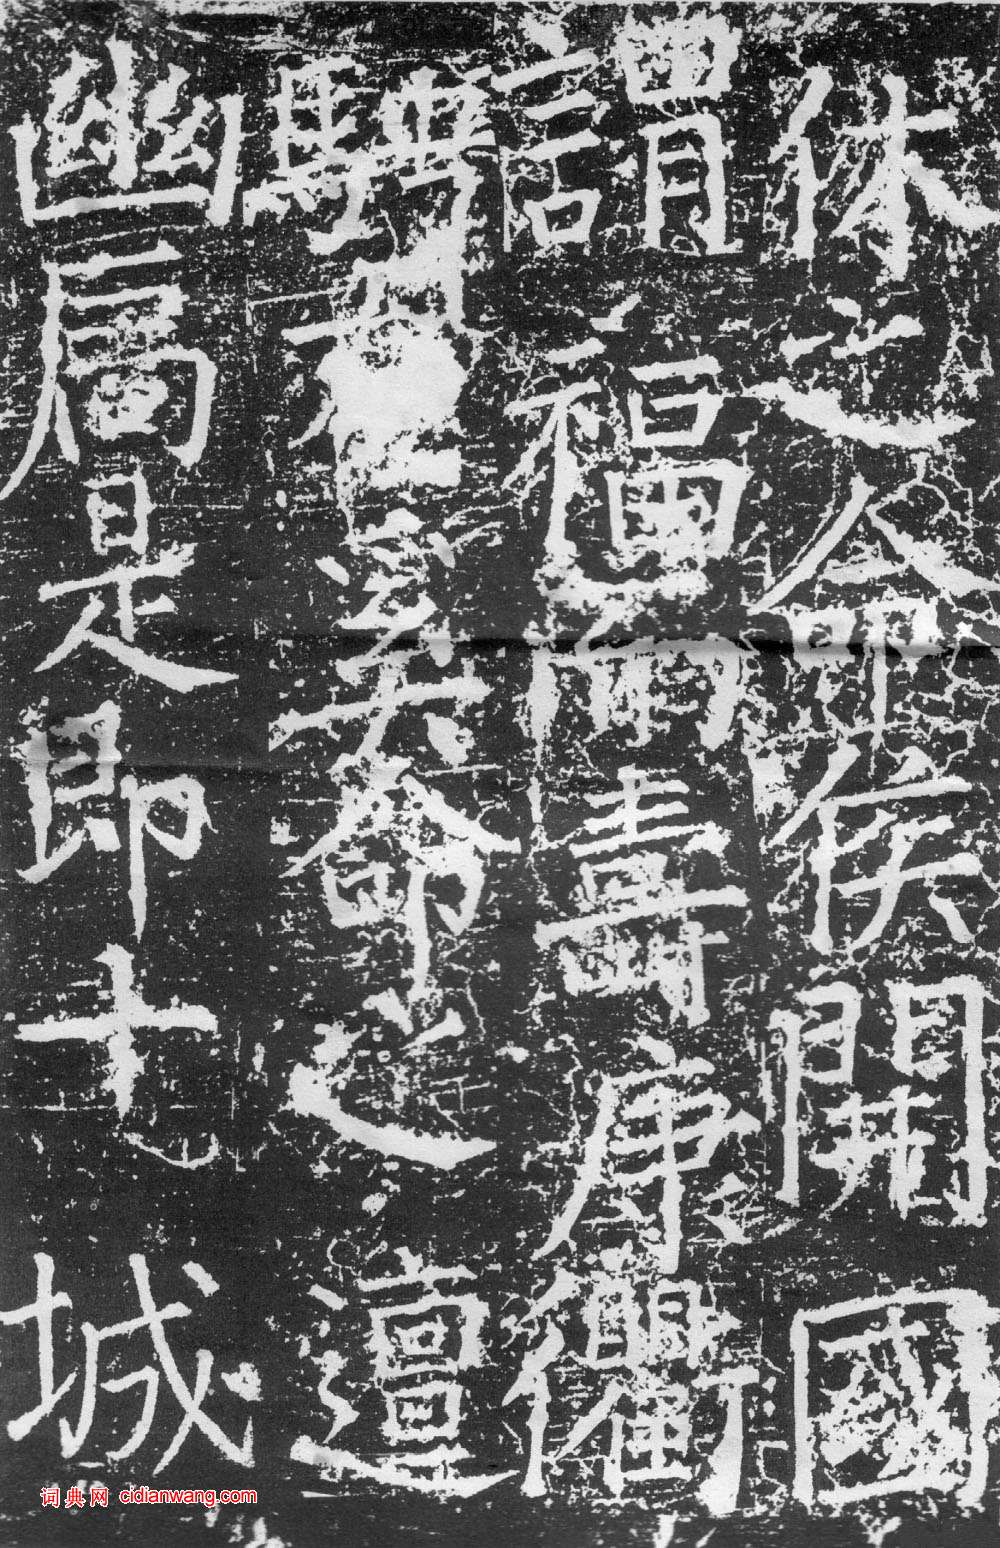 休之命侯開國
謂福而壽康衢
騁命之邅
幽扃是即十城
词典网 cidianwang.com